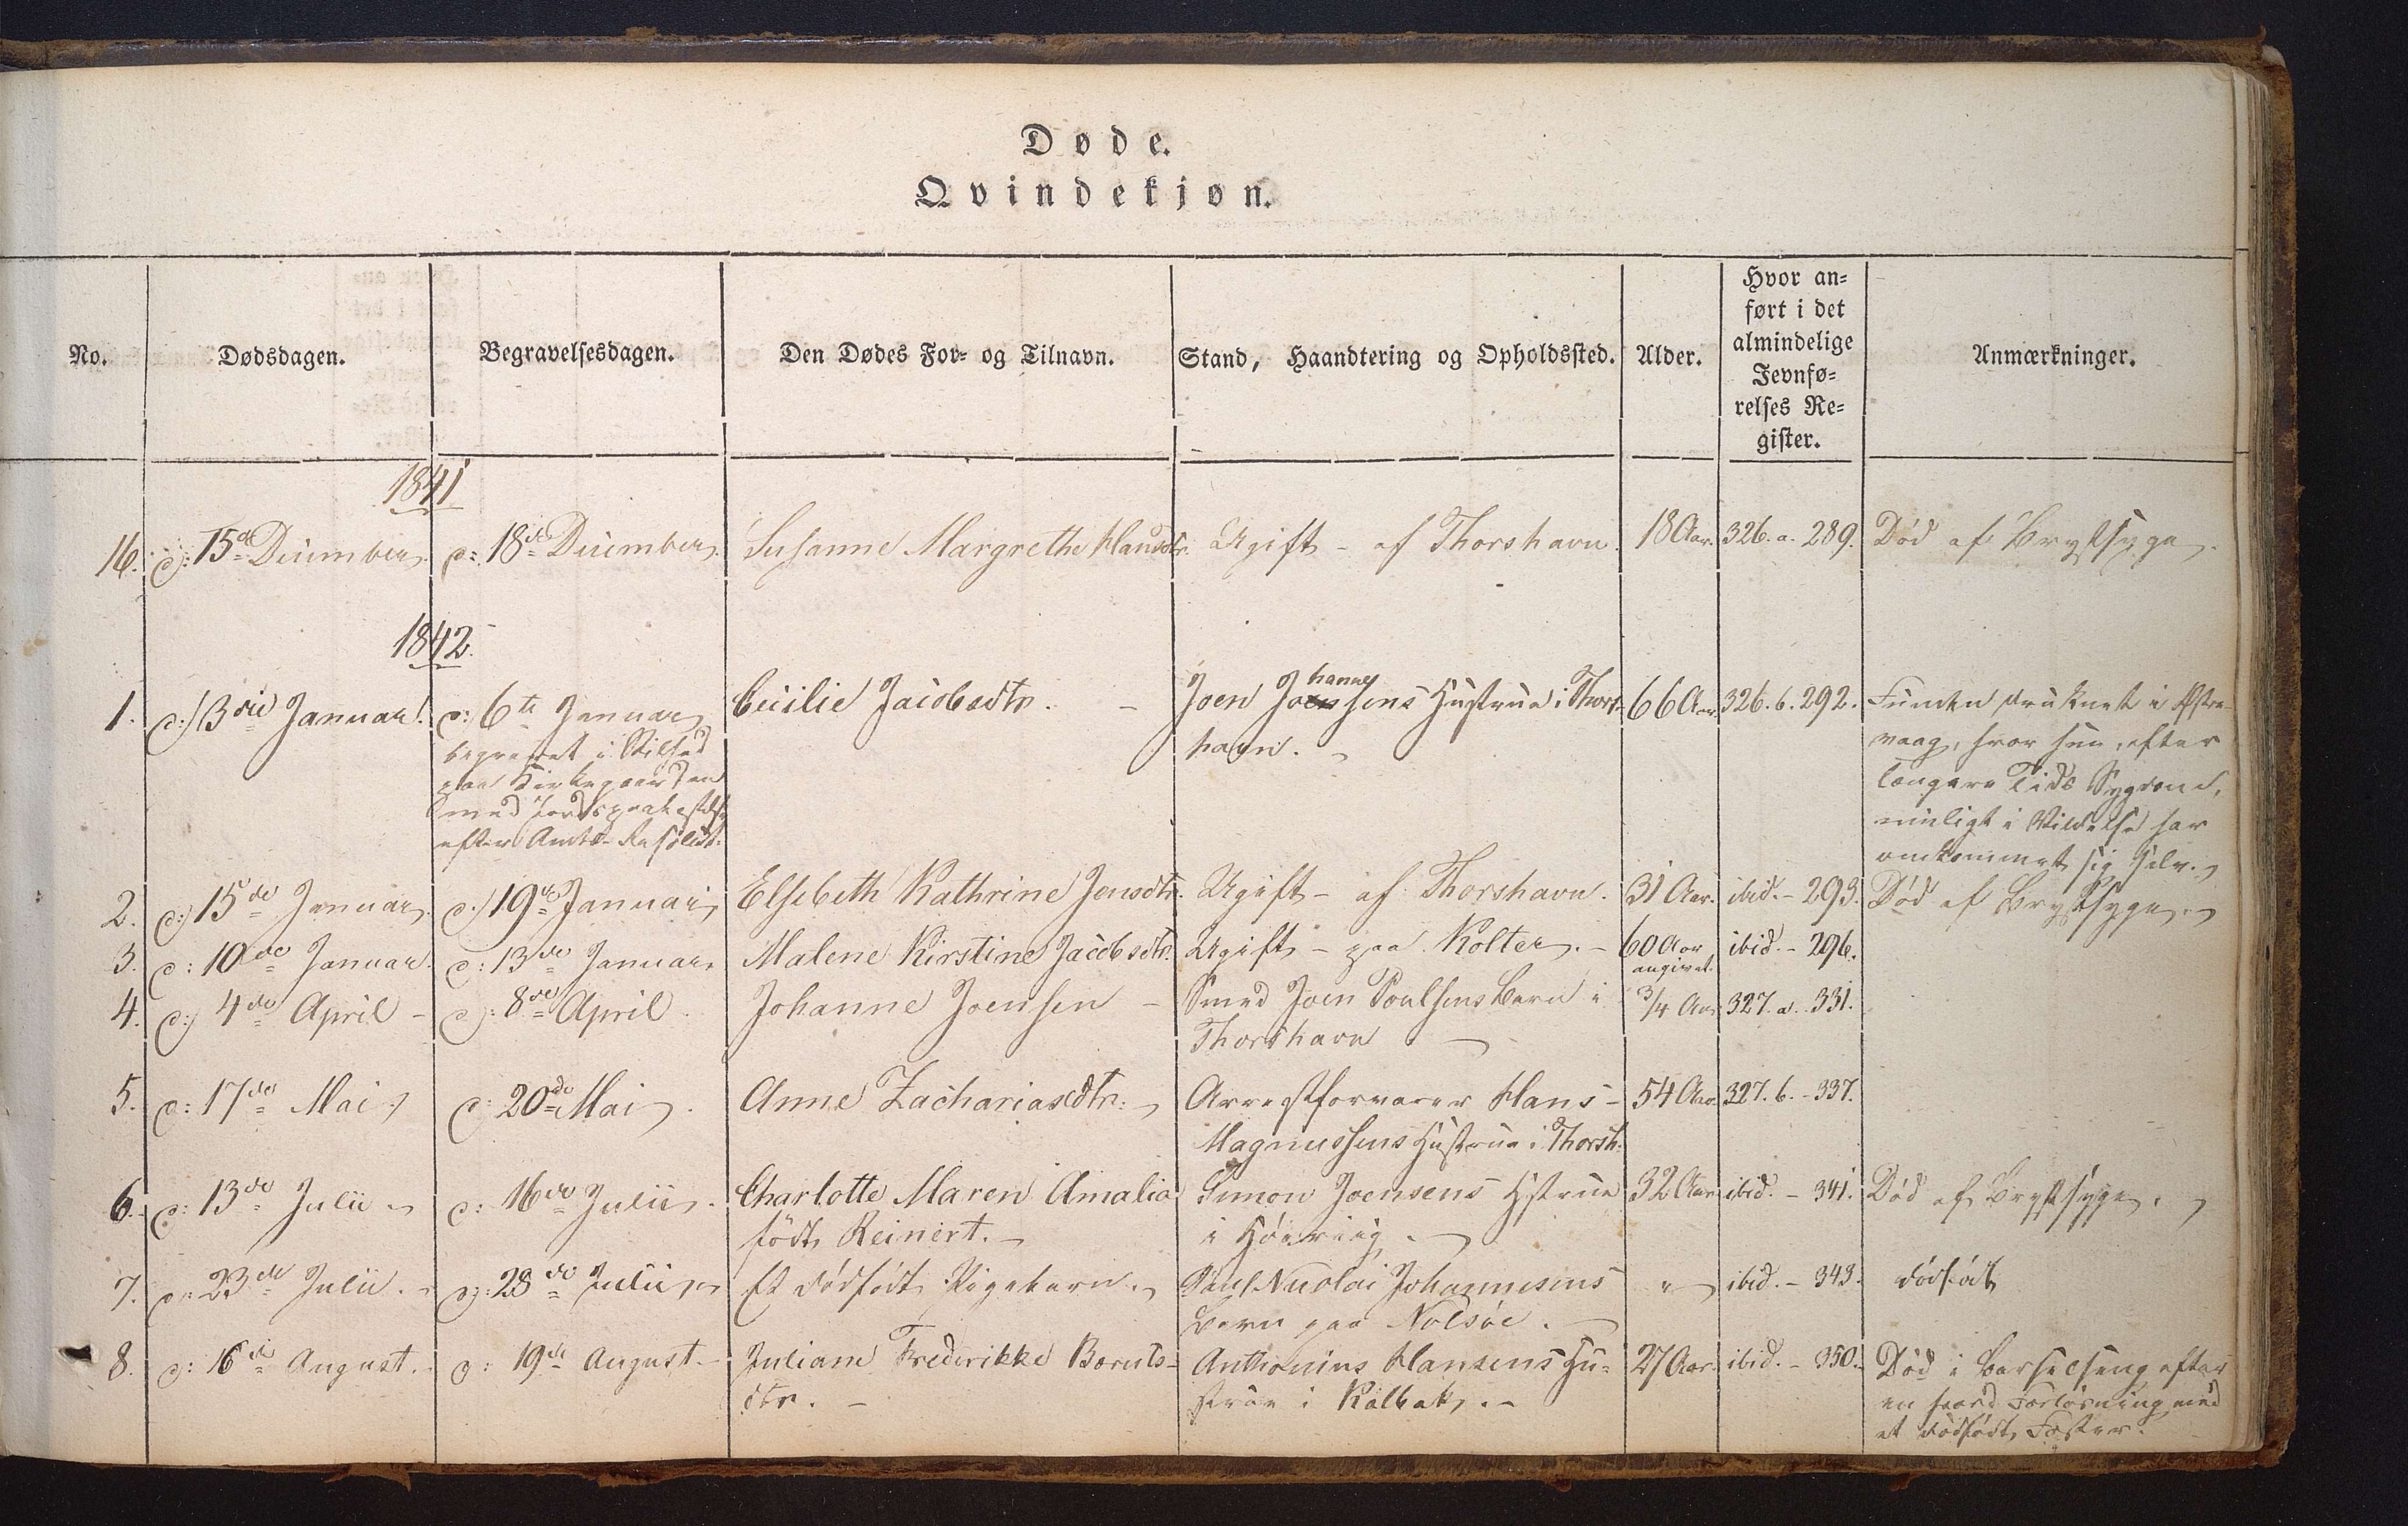 Døde.
Qvindekjøn.
No. Dødsdagen. Begravelsesdagen. Den Dødes For- og Tilnavn. Stand, Haandtering og Opholdssted. Alder. Hvor an-
ført i det
almindelige
Jevnfø-
relses Re-
gister. Anmærkninger.
1841
16. d: 15de December d: 18de December Susanne Margrethe Hansdtr. Ugift - af Thorshavn. 18 Aar. 326. a. 289. Død af Brystsyge.
1842.
1. d:) 3die Januar. d: 6te Januar
begravet i Stilhed
paa Kirkegaarden
med Jordspaakastelse
efter Amts-Resolut. Cecilie Jacobsdtr. - Joen Johannessens Hustrue i Thors-
havn. 66 Aar. 326. b. 292. Funden druknet i Østre-
vaag, hvor hun, efter
længere Tids Sygdom,
rimeligt i Vildelse har
omkommet sig selv.
2. d:) 15de Januar d:) 19de Januar Elsebeth Kathrine Jensdtr. Ugift - af Thorshavn. 31 Aar. ibid. - 293. Død af Brystsyge.
3. d: 10de Januar. d: 13de Januar Malene Kirstine Jacobsdtr. Ugift - paa Kolter. - 60 Aar
angivet. ibid. - 296.
4. d:) 4de April - d): 8de April. Johanne Joensen - Smed Joen Poulsens Barn i
Thorshavn 3/4 Aar 327. a. 331.
5. d: 17de Mai d: 20de Mai. Anne Zachariasdtr. Arrestforvarer Hans
Magnussens Hustrue i Thorsh. 54 Aar. 327. b. - 337.
6. d: 13de Julii d: 16de Julii. Charlotte Maren Amalia
født Reinert. - Simon Joensens Hstrue
i Høiviig. 32 Aar. ibid. - 341. Død af Brystsyge.
7. d: 23de Julii. d: 28de Julii Et dødfødt Pigebarn. Paul Nicolai Johannesens
Barn paa Nolsøe. " ibid. - 343. dødfødt
8. d: 16de August. d: 19de August. - Juliane Frederikke Bærnts-
dtr. - Anthonius Hansens Hu-
strue i Kalbak. - 27 Aar. ibid. - 350. Død i Barselseng efter
en haard Forløsning med
et dødfødt Foster.